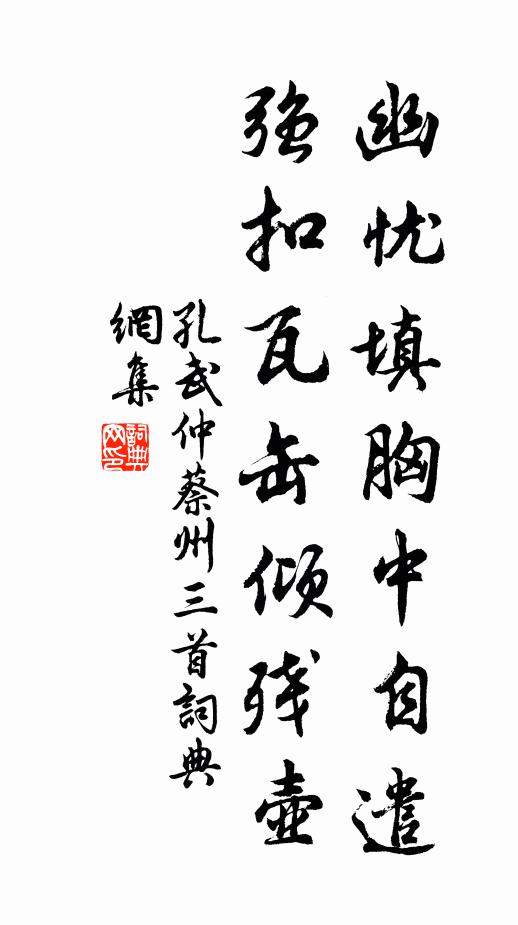 幽忧填胸中自遣
强扣瓦缶倾残壶
孔武仲蔡州三首詞典
網集
詞典
网印